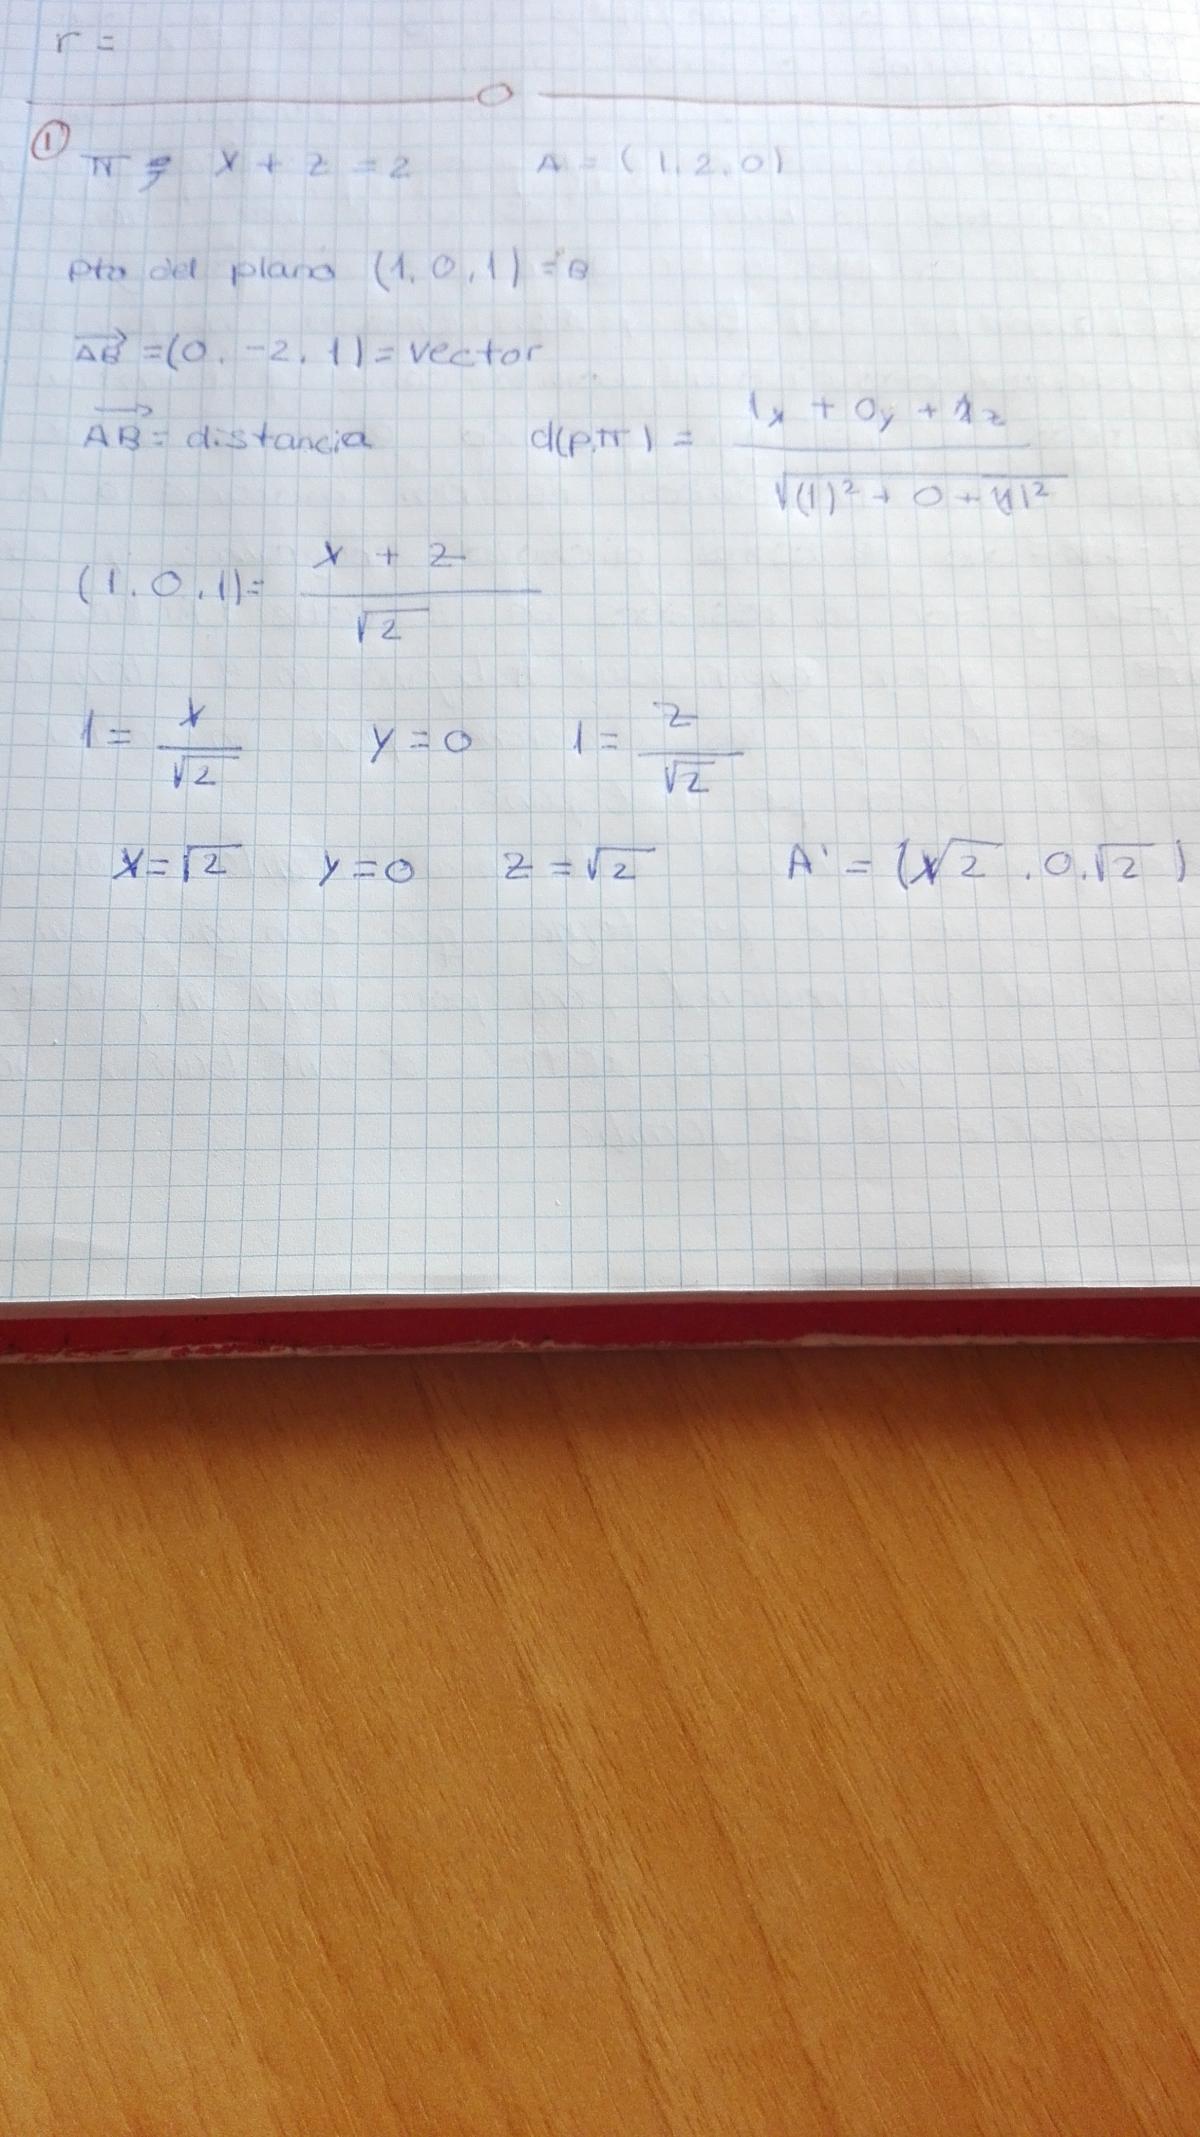 r =
① π ≡ x + z = 2 A = (1, 2, 0)
pto del plano (1, 0, 1) = B
AB = (0, -2, 1) = vector
AB = distancia d(p,π) = 1x + 0y + 1z / √(1)² + 0 + (1)²
(1, 0, 1) = x + z / √2
1 = x / √2 y = 0 1 = z / √2
x = √2 y = 0 z = √2 A' = (√2, 0, √2)